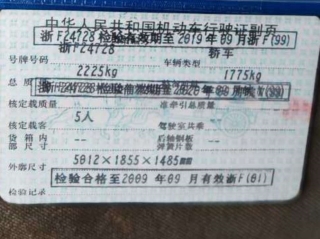 中华人民共和国机动车行驶证副页
浙F24728 检验有效期至2019年09月浙F(99)
浙F24728 轿车
号牌号码 车辆类型
2225kg 1775kg
总质
浙F24728检验有效期至2020年09月
核定载质量 准牵引总质量
5人
核定载客 驾驶室共乘
货箱内部尺寸 后轴钢板弹簧片数
5012×1855×1485
外廓尺寸
检验合格至2009年09月有效浙F(01)
检验记录